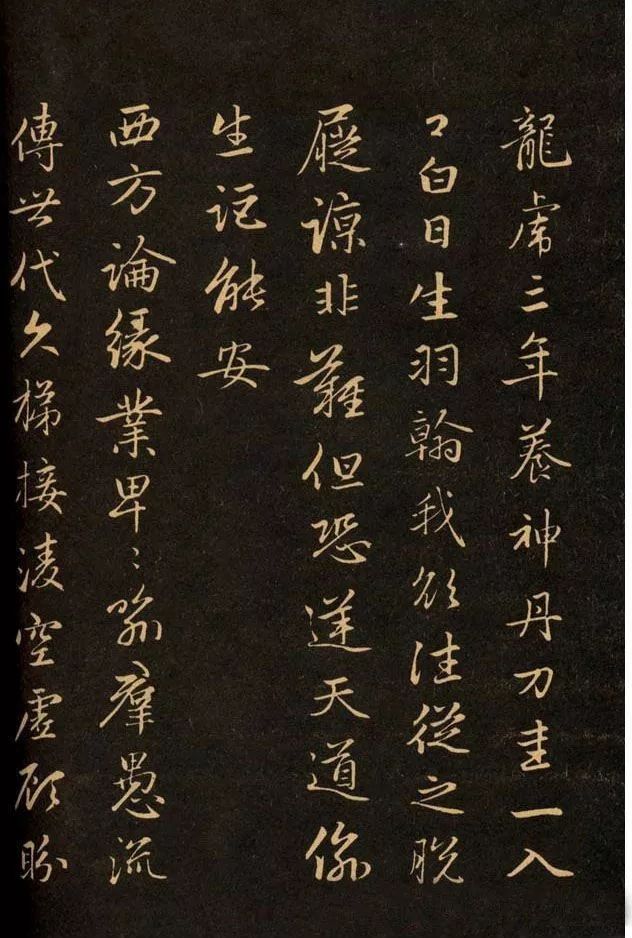 龍虎三年養神丹刀圭一入
口白日生羽翰我欲往從之脫
屣諒非難但恐逆天道偷
生詎能安
西方論緣業卑〻喻羣愚流
傳世代久梯接淩空虛顧盼